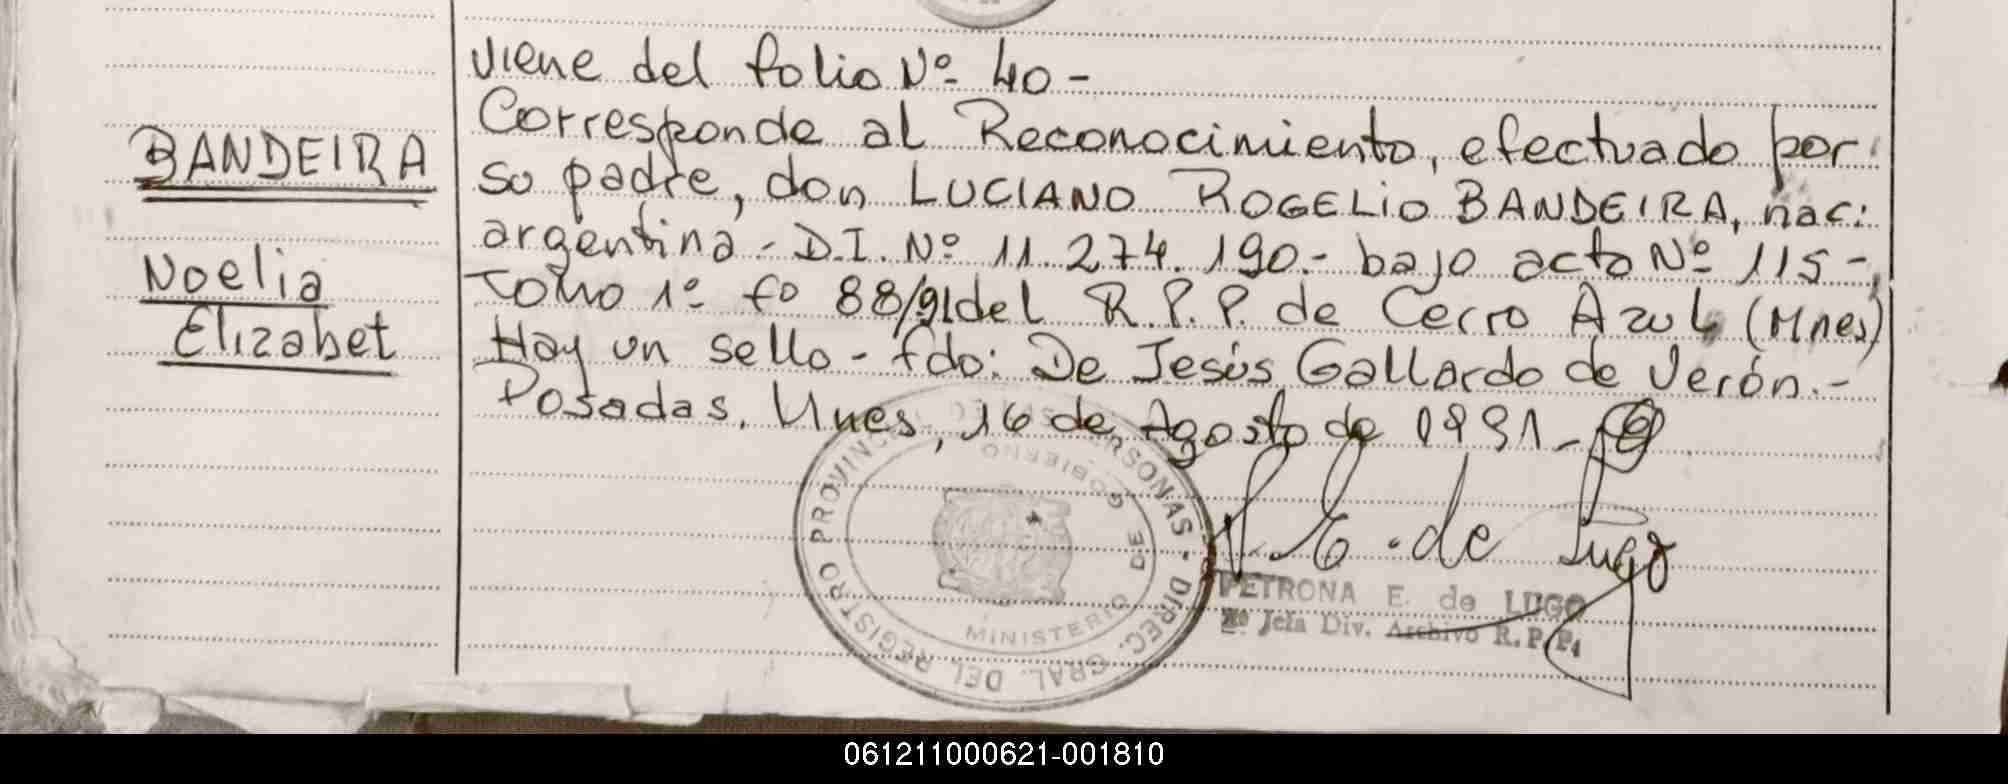 viene del folio Nº 40-
Corresponde al Reconocimiento, efectuado por
BANDEIRA
su padre, don LUCIANO ROGELIO BANDEIRA, nac:
argentina - D.I. Nº 11.274.190.- bajo acta Nº 115-,
Noelia
Tomo 1º fº 88/91 del R.P.P. de Cerro Azul (Mnes)
Elizabet
Hay un sello - fdo: De Jesús Gallardo de Verón.-
Posadas, Mnes, 16 de Agosto de 1991-
P. E. de Lugo
PETRONA E. de LUGO
2º Jefa Div. Archivo R.P.P.
DIREC. GRAL. DEL REGISTRO PROVINCIAL PERSONAS
MINISTERIO DE GOBIERNO
061211000621-001810